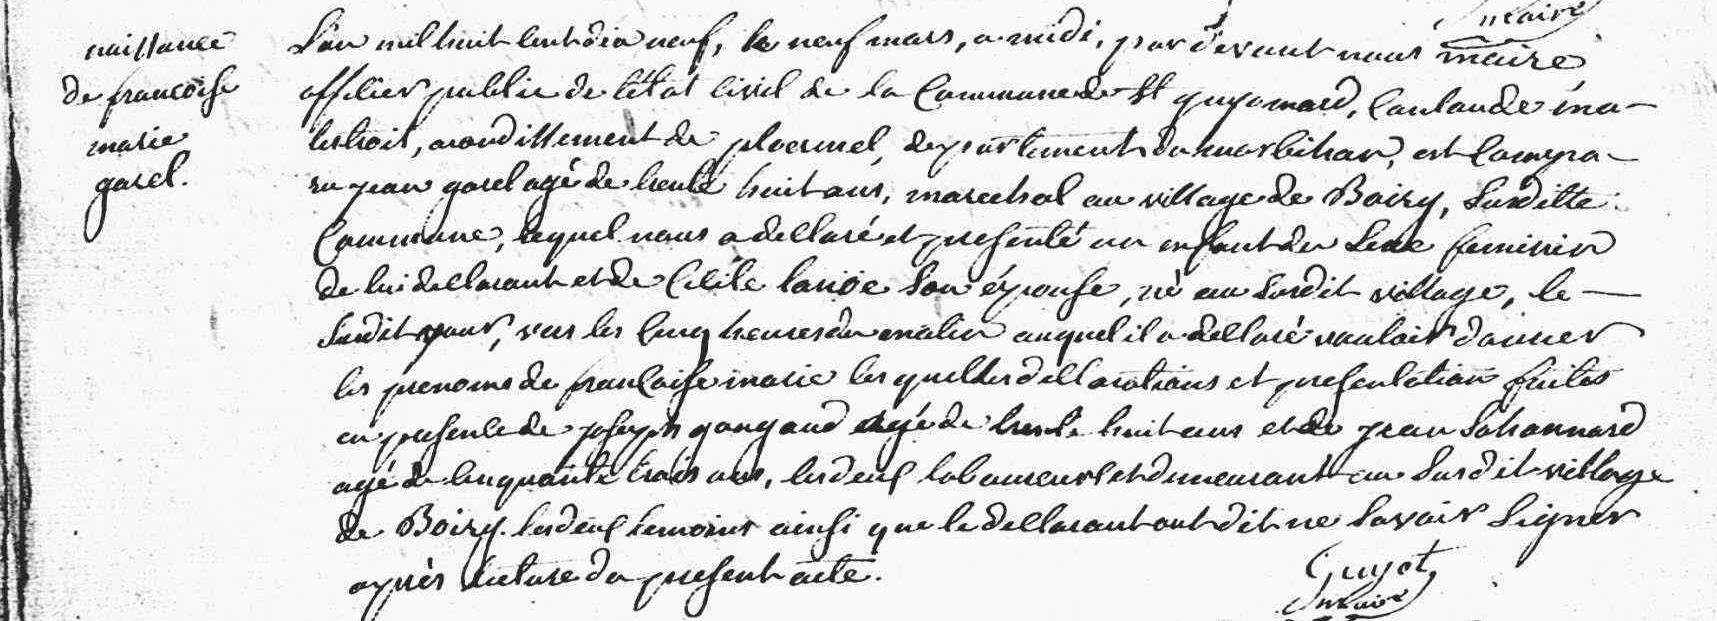 maire
naissance
de francoise
marie
garel.
L'an mil huit cent dix neuf, le neuf mars, a midi, par devant nous maire
officier public de l'état civil de la Commune de St guyomard, Canton de ma-
lestroit, arondissement de ploermel, departement du morbihan, est Compa-
ru jean garel agé de trente huit ans, marechal au village de Boizy, Susditte
Commune, lequel nous a declaré et presenté un enfant du Sexe feminin
de lui declarant et de Cecile lanoe Son épouse, né au Susdit village, le
Susdit jour, vers les Cinq heures du matin auquel il a declaré vouloir donner
les prenoms de francoise marie les quelles declarations et presentation faites
en presence de joseph gougaud agé de trente huit ans et de jean
agé de Cinquante trois ans, les deux laboureurs et demeurant au Susdit village
de Boizy. les deux temoins ainsi que le declarant ont dit ne Savoir Signer
après lecture du present acte.
Guyot
maire